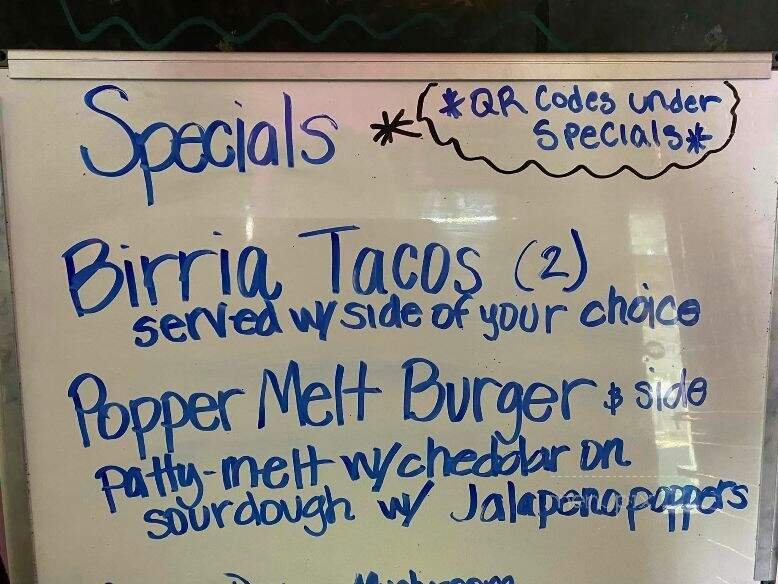 Specials
*QR Codes under
Specials*
Birria Tacos (2)
served w/ side of your choice
Popper Melt Burger & side
patty-melt w/ cheddar on
sourdough w/ Jalapeno poppers
Mushroom